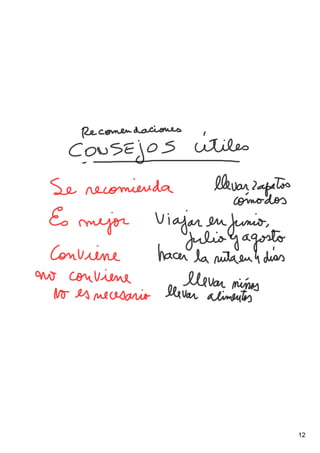 Recomendaciones
CONSEJOS útiles
Se recomienda llevar zapatos cómodos
Es mejor Viajar en Junio, julio y agosto
Conviene hacer la ruta en 4 días
no conviene llevar niños
No es necesario llevar alimentos
12